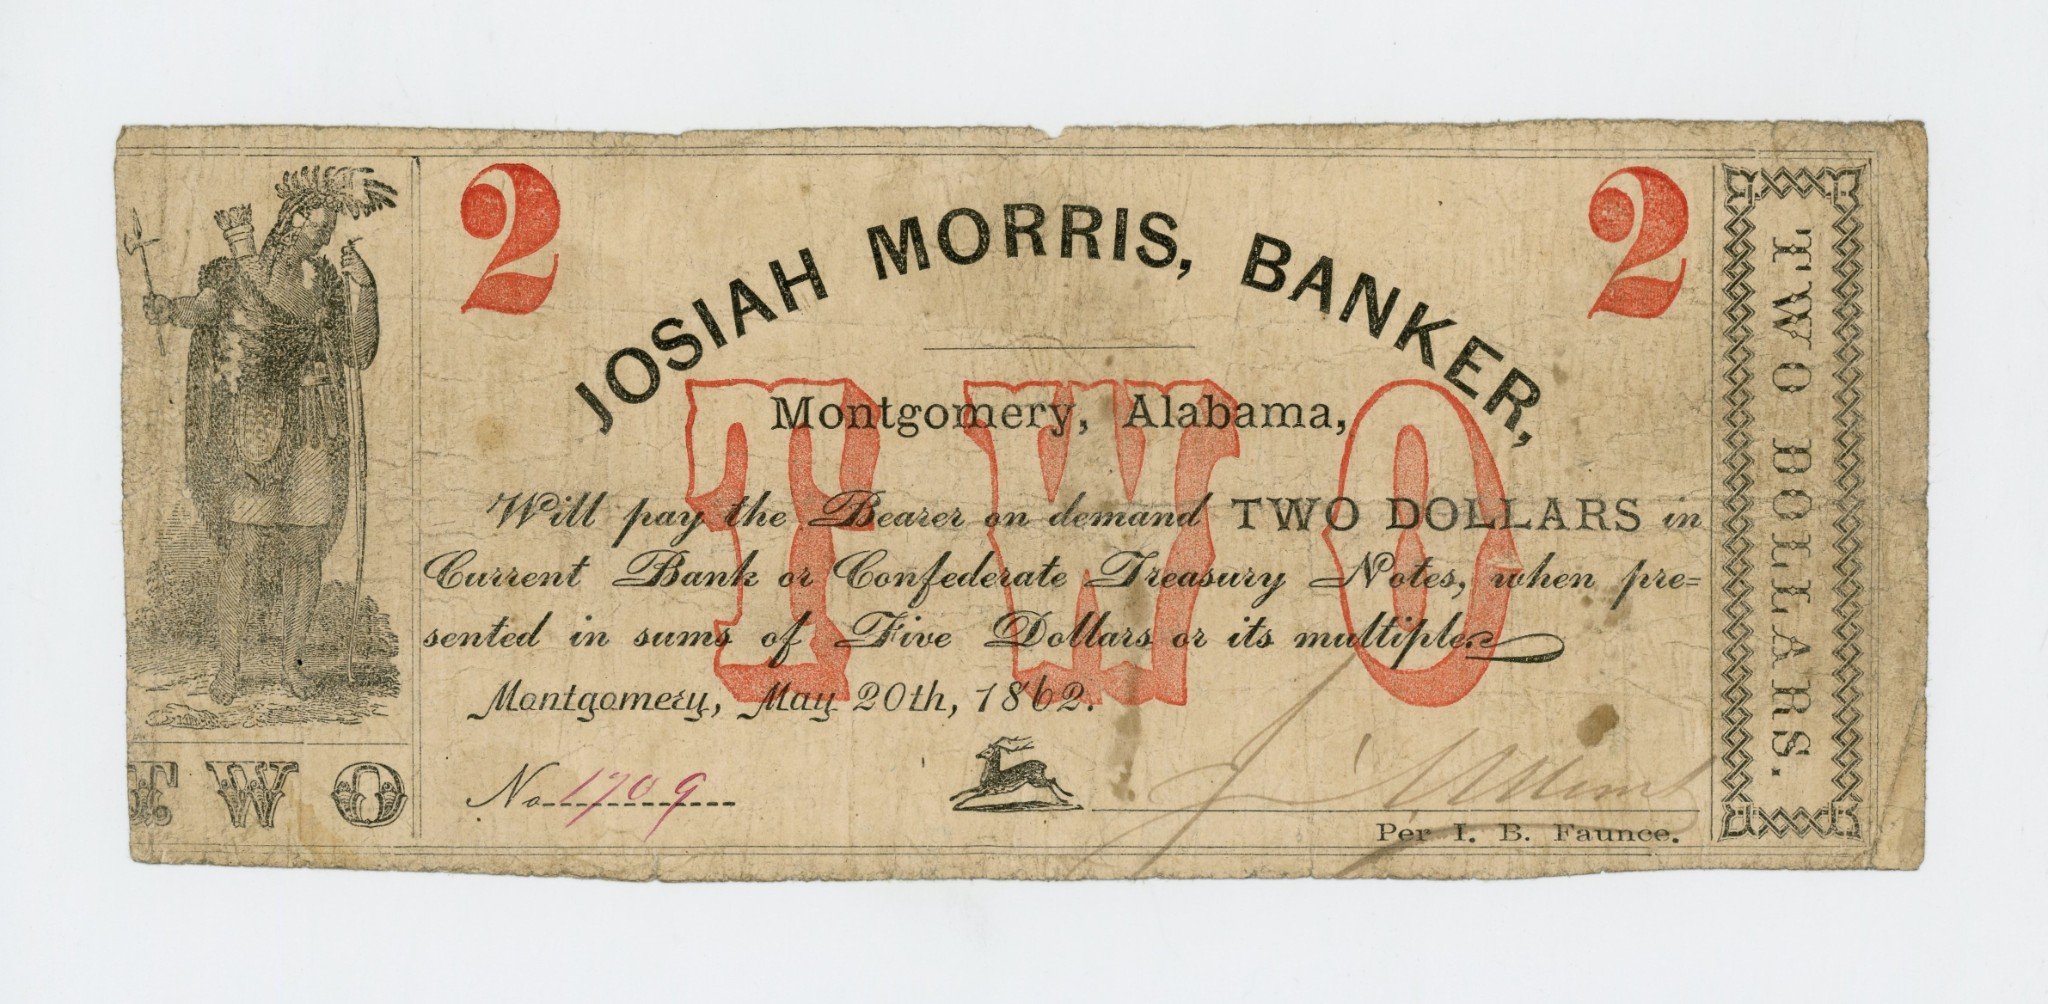 2
2
JOSIAH MORRIS, BANKER,
Montgomery, Alabama,
TWO
Will pay the Bearer on demand TWO DOLLARS in
Current Bank or Confederate Treasury Notes, when pre=
sented in sums of Five Dollars or its multiple.
Montgomery, May 20th, 1862.
No 1709
Per I. B. Faunce.
TWO
TWO DOLLARS.